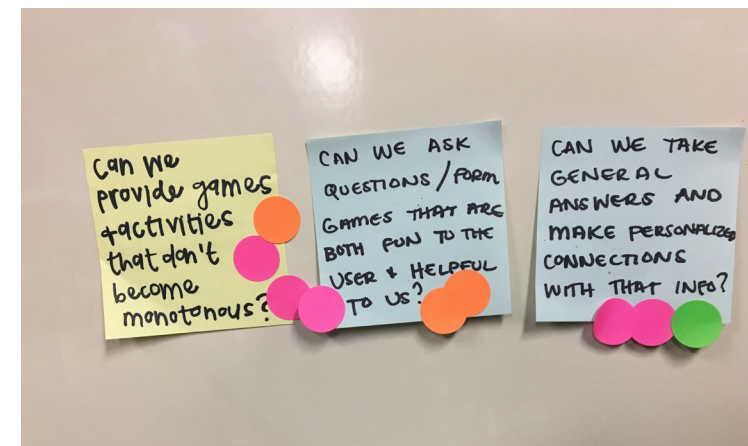 can we
provide games
+activities
that don't
become
monotonous?
CAN WE ASK
QUESTIONS/FORM
GAMES THAT ARE
BOTH FUN TO THE
USER & HELPFUL
TO US?
CAN WE TAKE
GENERAL
ANSWERS AND
MAKE PERSONALIZED
CONNECTIONS
WITH THAT INFO?